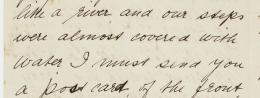 like a river and our steps
were almost covered with
water I must send you
a post card, of the front